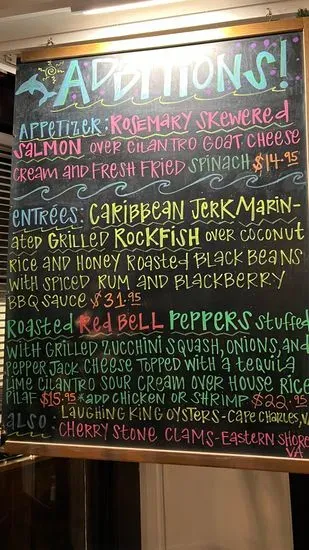 ADDITIONS!
APPETIZER: ROSEMARY SKEWERED
SALMON OVER CILANTRO GOAT CHEESE
CREAM AND FRESH FRIED SPINACH $14.95
ENTRÉES: CARIBBEAN JERK MARIN-
ATED GRILLED ROCKFISH OVER COCONUT
RICE AND HONEY ROASTED BLACK BEANS
WITH SPICED RUM AND BLACKBERRY
BBQ SAUCE $31.95
ROASTED RED BELL PEPPERS STUFFED
WITH GRILLED ZUCCHINI SQUASH, ONIONS, AND
PEPPER JACK CHEESE TOPPED WITH A TEQUILA
LIME CILANTRO SOUR CREAM OVER HOUSE RICE
PILAF $15.95 *ADD CHICKEN OR SHRIMP $22.95
ALSO: LAUGHING KING OYSTERS - CAPE CHARLES, VA
CHERRY STONE CLAMS - EASTERN SHORE
VA